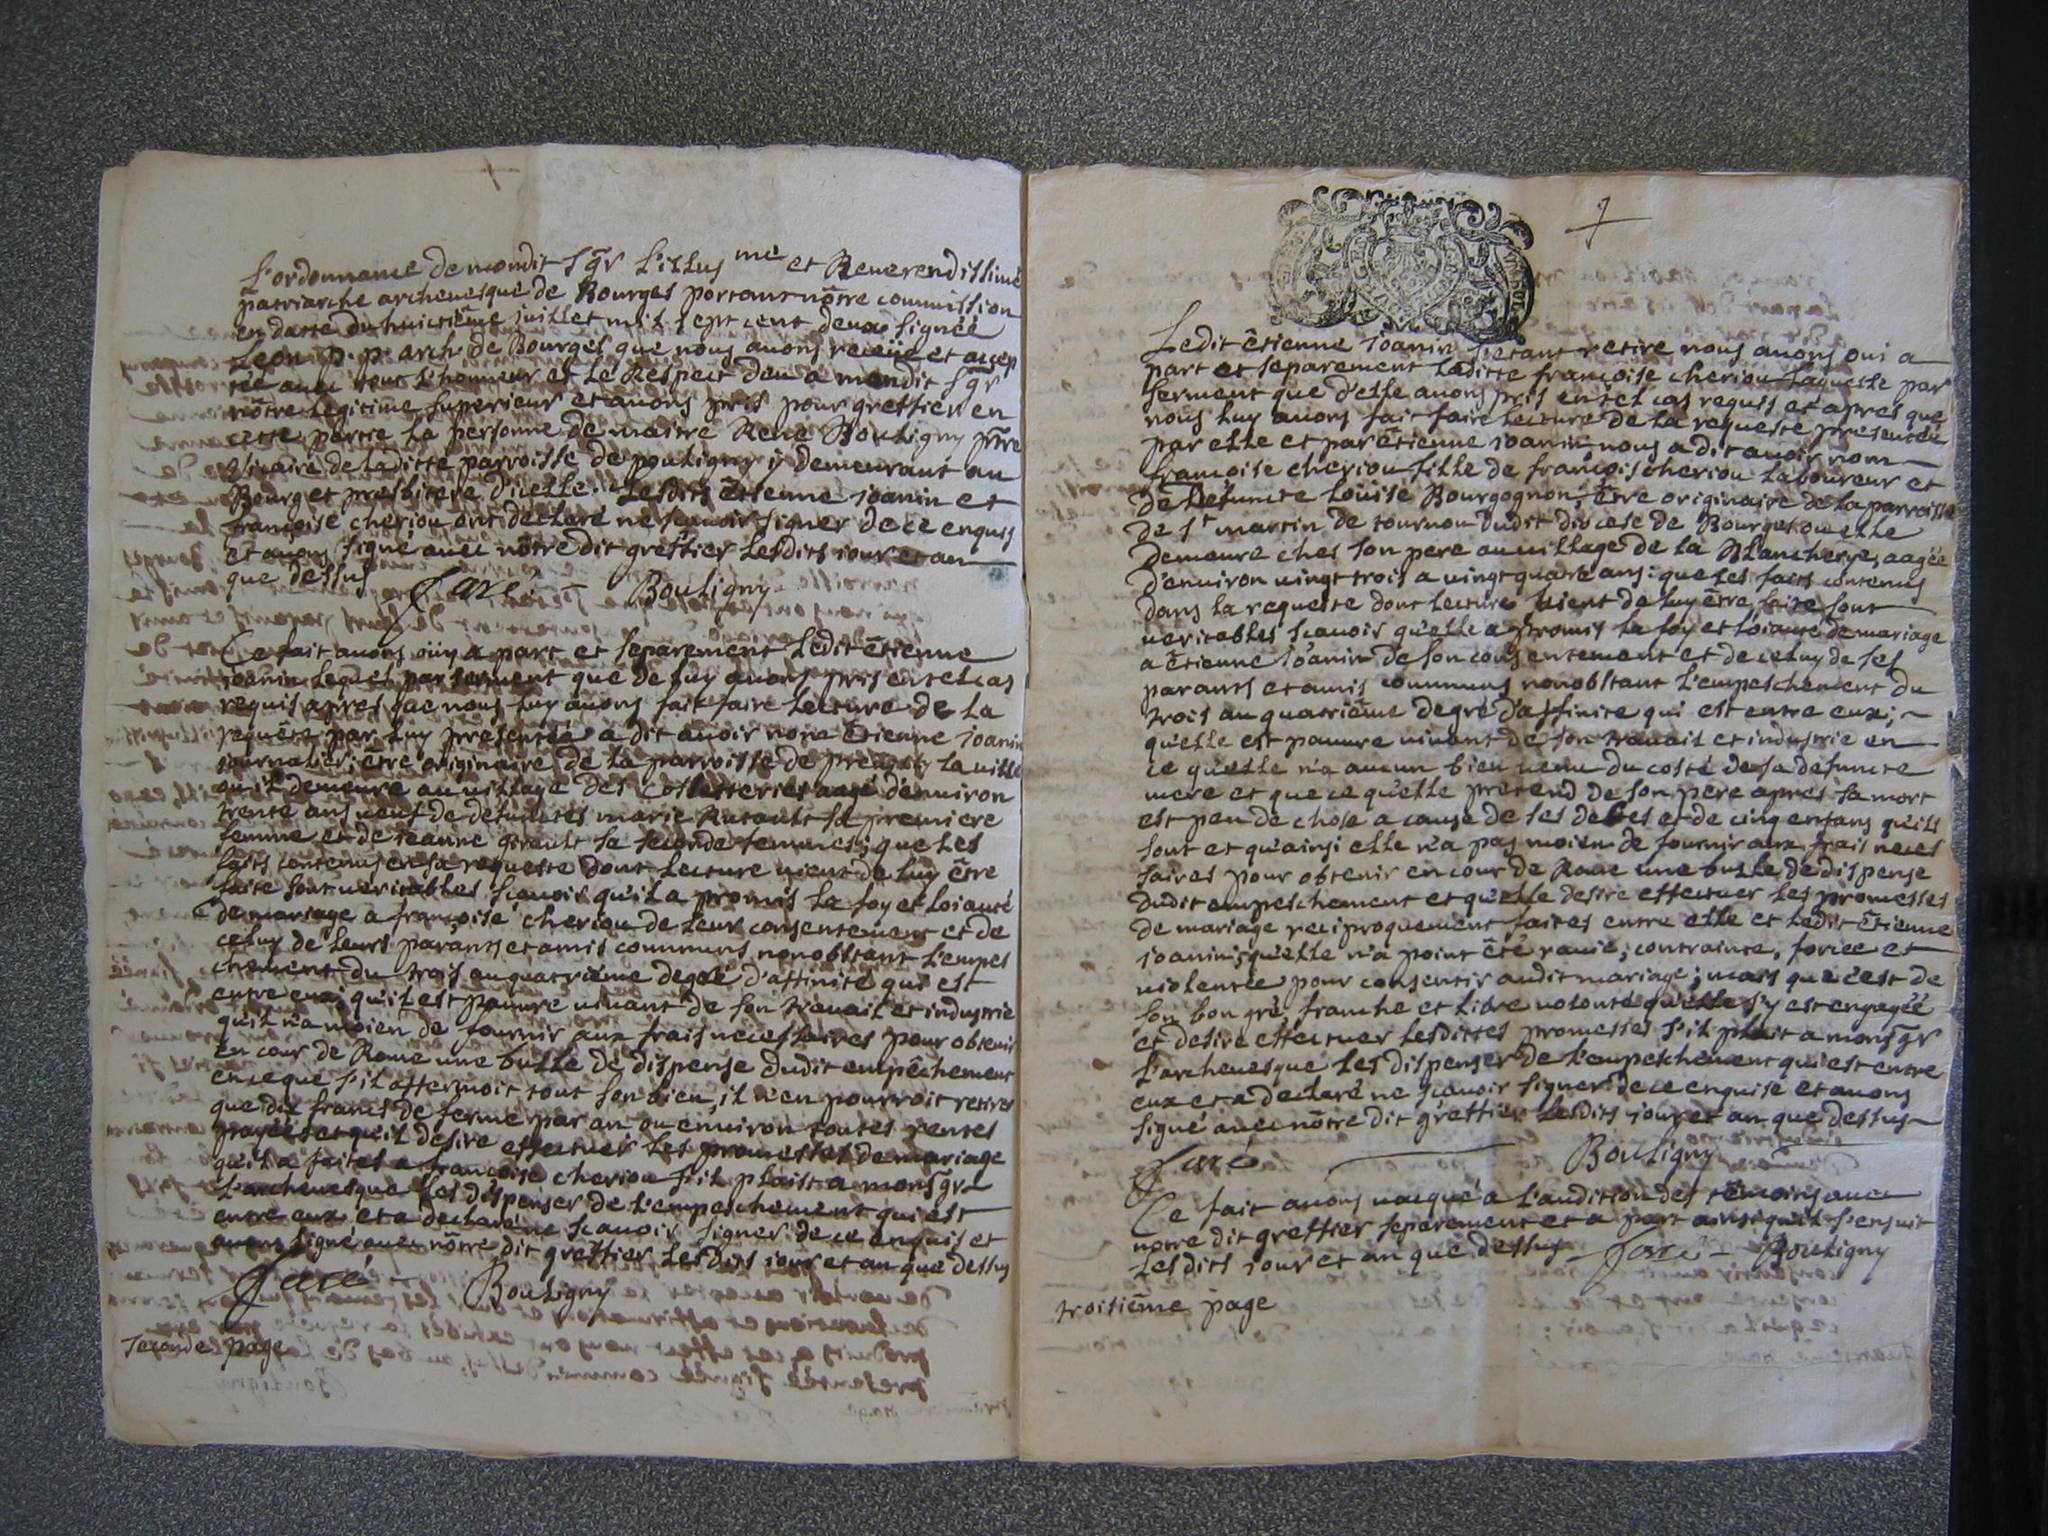 L'ordonnance de mondit sgr L'illus me et Reuerendissime
patriarche archeuesque de Bourges portant nôtre commission
en datte du huictiême juillet mil sept cent deux signée
Leon p. p. arch. de Bourges que nous auons receüe et accep
tée auec tout l'honneur et le Respect deu a mondit sgr
nôtre legitime superieur et auons pris pour greffier en
cette partie la personne de maitre René Bouligny prtre
vicaire de laditte parroisse de pouligny y demeurant au
Bourg et presbitere d'icelle. Lesdits êtienne ioanin et
françoise cheriou ont declaré ne scauoir signer de ce enquis
et auons signé auec nôtre dit greffier lesdits iour et an
que dessus Bouligny
Ce fait auons oüy a part et separement Ledit êtienne
ioanin Lequel par serment que de luy auons pris en tel cas
requis apres que nous luy auons fait faire Lecture de La
requête par Luy presentée a dit auoir nom Êtienne ioanin
journalier; être originaire de la parroisse de preuilly la uille
qu'il demeure au uillage des aagé d'enuiron
trente ans ueuf de defunctes marie sa premiere
femme et de jeanne girault sa seconde femmes; que Les
faits contenus en sa requeste dont Lecture uient de luy être
faite sont ueritables scauoir qu'il a promis La foy et loiauté
de mariage a françoise cheriou de leur consentement et de
celuy de leurs parants et amis communs nonobstant L'empes
chement du trois au quatriême degré d'affinité qui est
entre eux; qu'il est pauure uiuant de son trauail et industrie
qu'il n'a moien de fournir aux frais necessaires pour obtenir
en cour de Rome une bulle de dispense dudit empêchement
en ce que s'il affermoit tout son bien, il n'en pourroit retirer
que dix francs de ferme par an ou enuiron toutes rentes
payées et qu'il desire effectuer Les promesses de mariage
qu'il a faites a françoise cheriou s'il plaist a monsgr
L'archeuesque Les dispenser de L'empeschement qui est
entre eux et a declaré ne scauoir signer de ce enquis et
auons signé auec nôtre dit greffier Lesdits iour et an que dessus
Bouligny
seconde page
Ledit êtienne ioanin s'etant retiré nous auons oui a
part et separement Laditte françoise cheriou Laquelle par
serment que d'elle auons pris en tel cas requis et apres que
nous luy auons fait faire Lecture de la requeste presentée
par elle et par êtienne ioanin nous a dit auoir nom
françoise cheriou fille de françois cheriou Laboureur et
de defuncte Loüise Bourgognon; être originaire de la parroisse
de st martin de tournon dudit diocese de Bourges ou elle
demeure ches son pere au uillage de la Blancherye, aagée
d'enuiron uingt trois a uingt quatre ans: que les faits contenus
dans la requeste dont lecture uient de luy être faite sont
ueritables scauoir qu'elle a promis La foy et loiauté de mariage
a êtienne ioanin de son consentement et de celuy de ses
parants et amis communs nonobstant L'empeschement du
trois au quatriême degré d'affinité qui est entre eux;
qu'elle est pauure uiuant de son trauail et industrie en
ce qu'elle n'a aucun bien uenu du costé de sa defuncte
mere et que ce qu'elle pretend de son pere apres sa mort
est peu de chose a cause de ses debtes et de cinq enfans qu'ils
sont et qu'ainsi elle n'a pas moien de fournir aux frais neces
saires pour obtenir en cour de Rome une bulle de dispense
dudit empeschement et qu'elle desire effectuer Les promesses
de mariage reciproquement faites entre elle et Ledit Êtienne
ioanin; qu'elle n'a point êté rauie, contrainte, forcée et
uiolentée pour consentir audit mariage; mais que c'est de
son bon gré, franche et libre uolonté qu'elle s'y est engagée
et desire effectuer lesdittes promesses s'il plait a monsgr
L'archeuesque Les dispenser de L'empeschement qui est entre
eux et a declaré ne scauoir signer de ce enquise et auons
signé auec nôtre dit greffier Lesdits iour et an que dessus
Bouligny
Ce fait auons uacqué a L'audition des têmoins auec
notre dit greffier separement et a part ainsi qu'il s'ensuit
Lesdits iour et an que dessus Bouligny
troisiême page